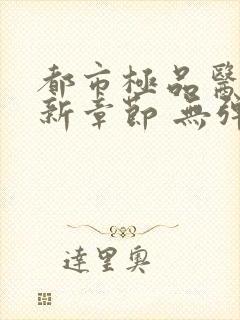 都市極品醫
新章節 無彈
達里奧